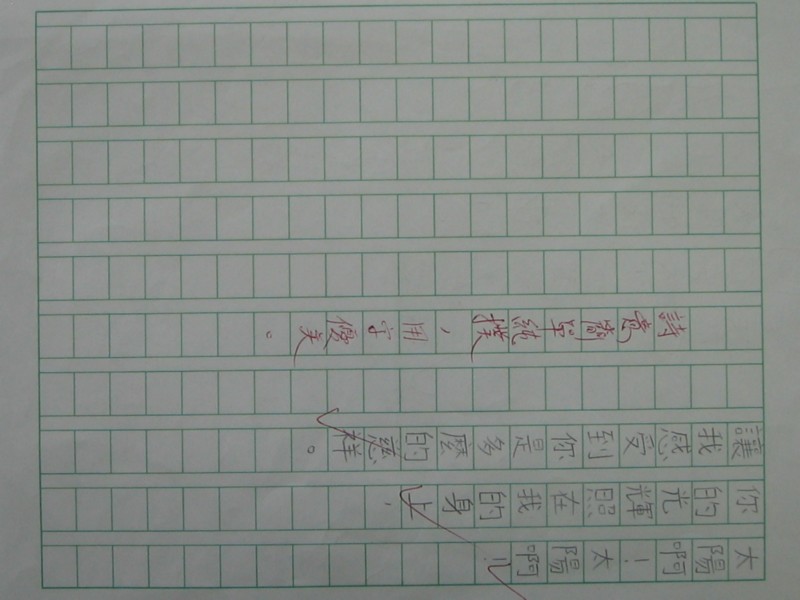 大陽啊！大陽啊！
你的光輝照在我的身上，
讓我感受到你是多麼的慈祥。
詩意簡單純樸，用字優美。